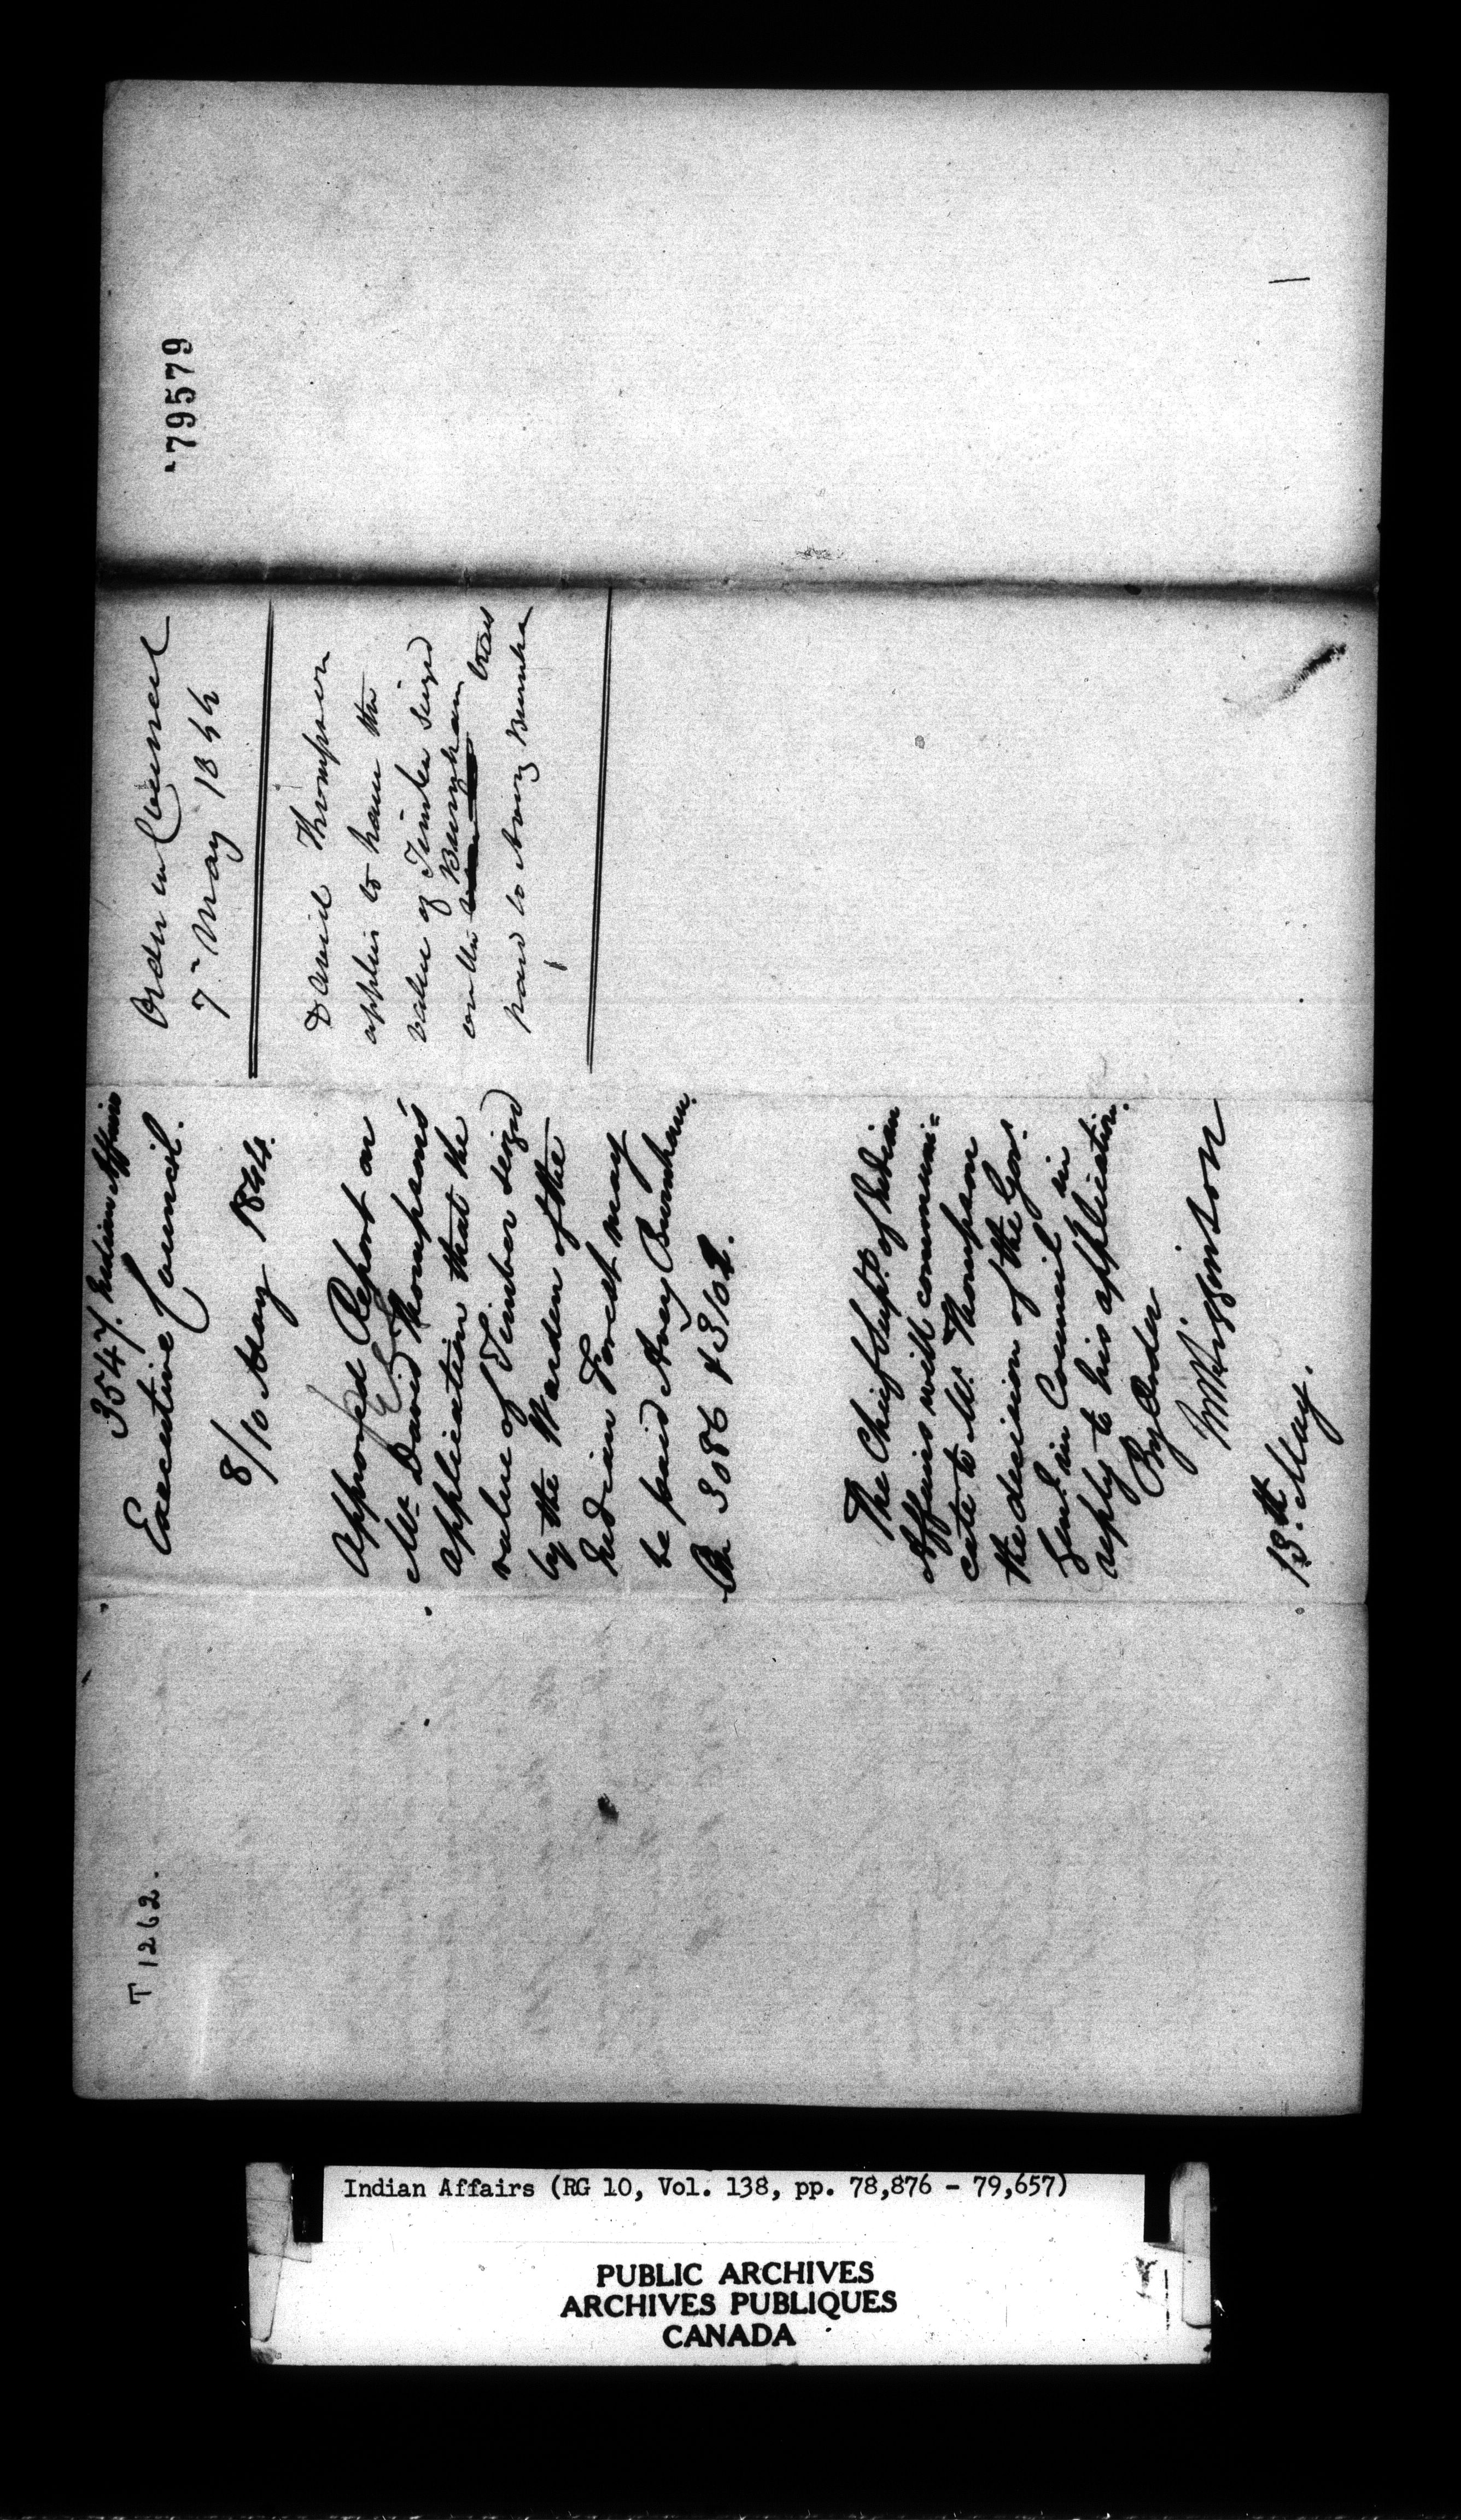 79579
Order in Council
7 May 1844
David Thompson
applies to have the
value of Timber seized
on the
Burnham
paid to Avery Burnha
3547. Indian Affairs
Executive Council.
8/10 May 1844.
Approved Report on
Mr. David Thompson's
application that the
value of Timber seized
by the Warden of the
Indian Forest may
be paid Avery Burnham.
On 3086 & 3102.
The Chief Supt. of Indian
Affairs will communi=
cate to Mr. Thompson
the decision of the Gov.
Genl. in Council in
reply to his application.
By Order
JMHigginson
13th May.
T 1262.
Indian Affairs (RG 10, Vol. 138, pp. 78,876 - 79,657)
PUBLIC ARCHIVES
ARCHIVES PUBLIQUES
CANADA